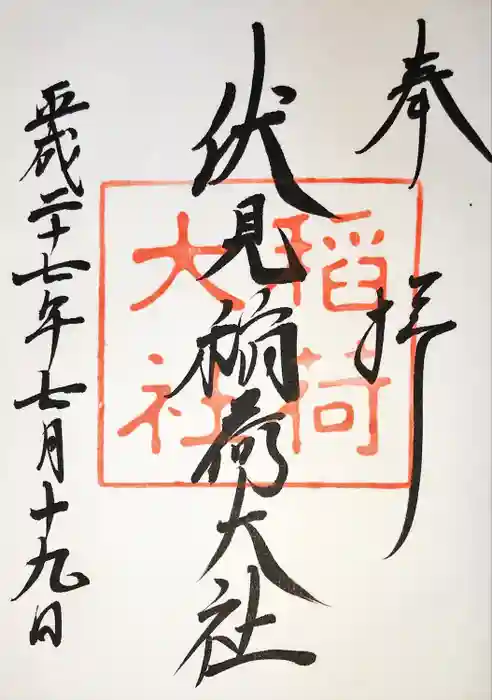 奉拝
伏見稲荷大社
稲荷
大社
平成二十七年七月十九日